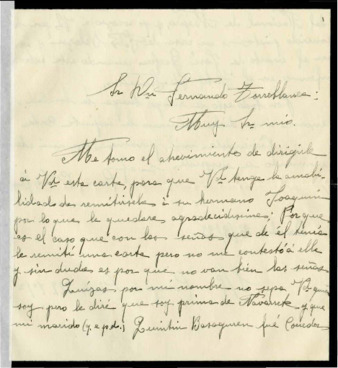 Sr Dn Fernando Torreblanca:
Muy Sr mio.
Me tomo el atrevimiento de dirigirle
á Vd esta carta, para que Vd tenga la amabi-
lidad de remitirsela á su hermano Joaquin
por lo que le quedare agradecidisima; Porque
es el caso que con las señas que de él tenia
le remiti una carta pero no me contestó á ella
y sin duda es por que no van bien las señas
Quizas por mi nombre no sepa Vd quien
soy pero le diré que soy prima de Navarrete y que
mi marido (q.e.p.d.) Quintin fué Conedor